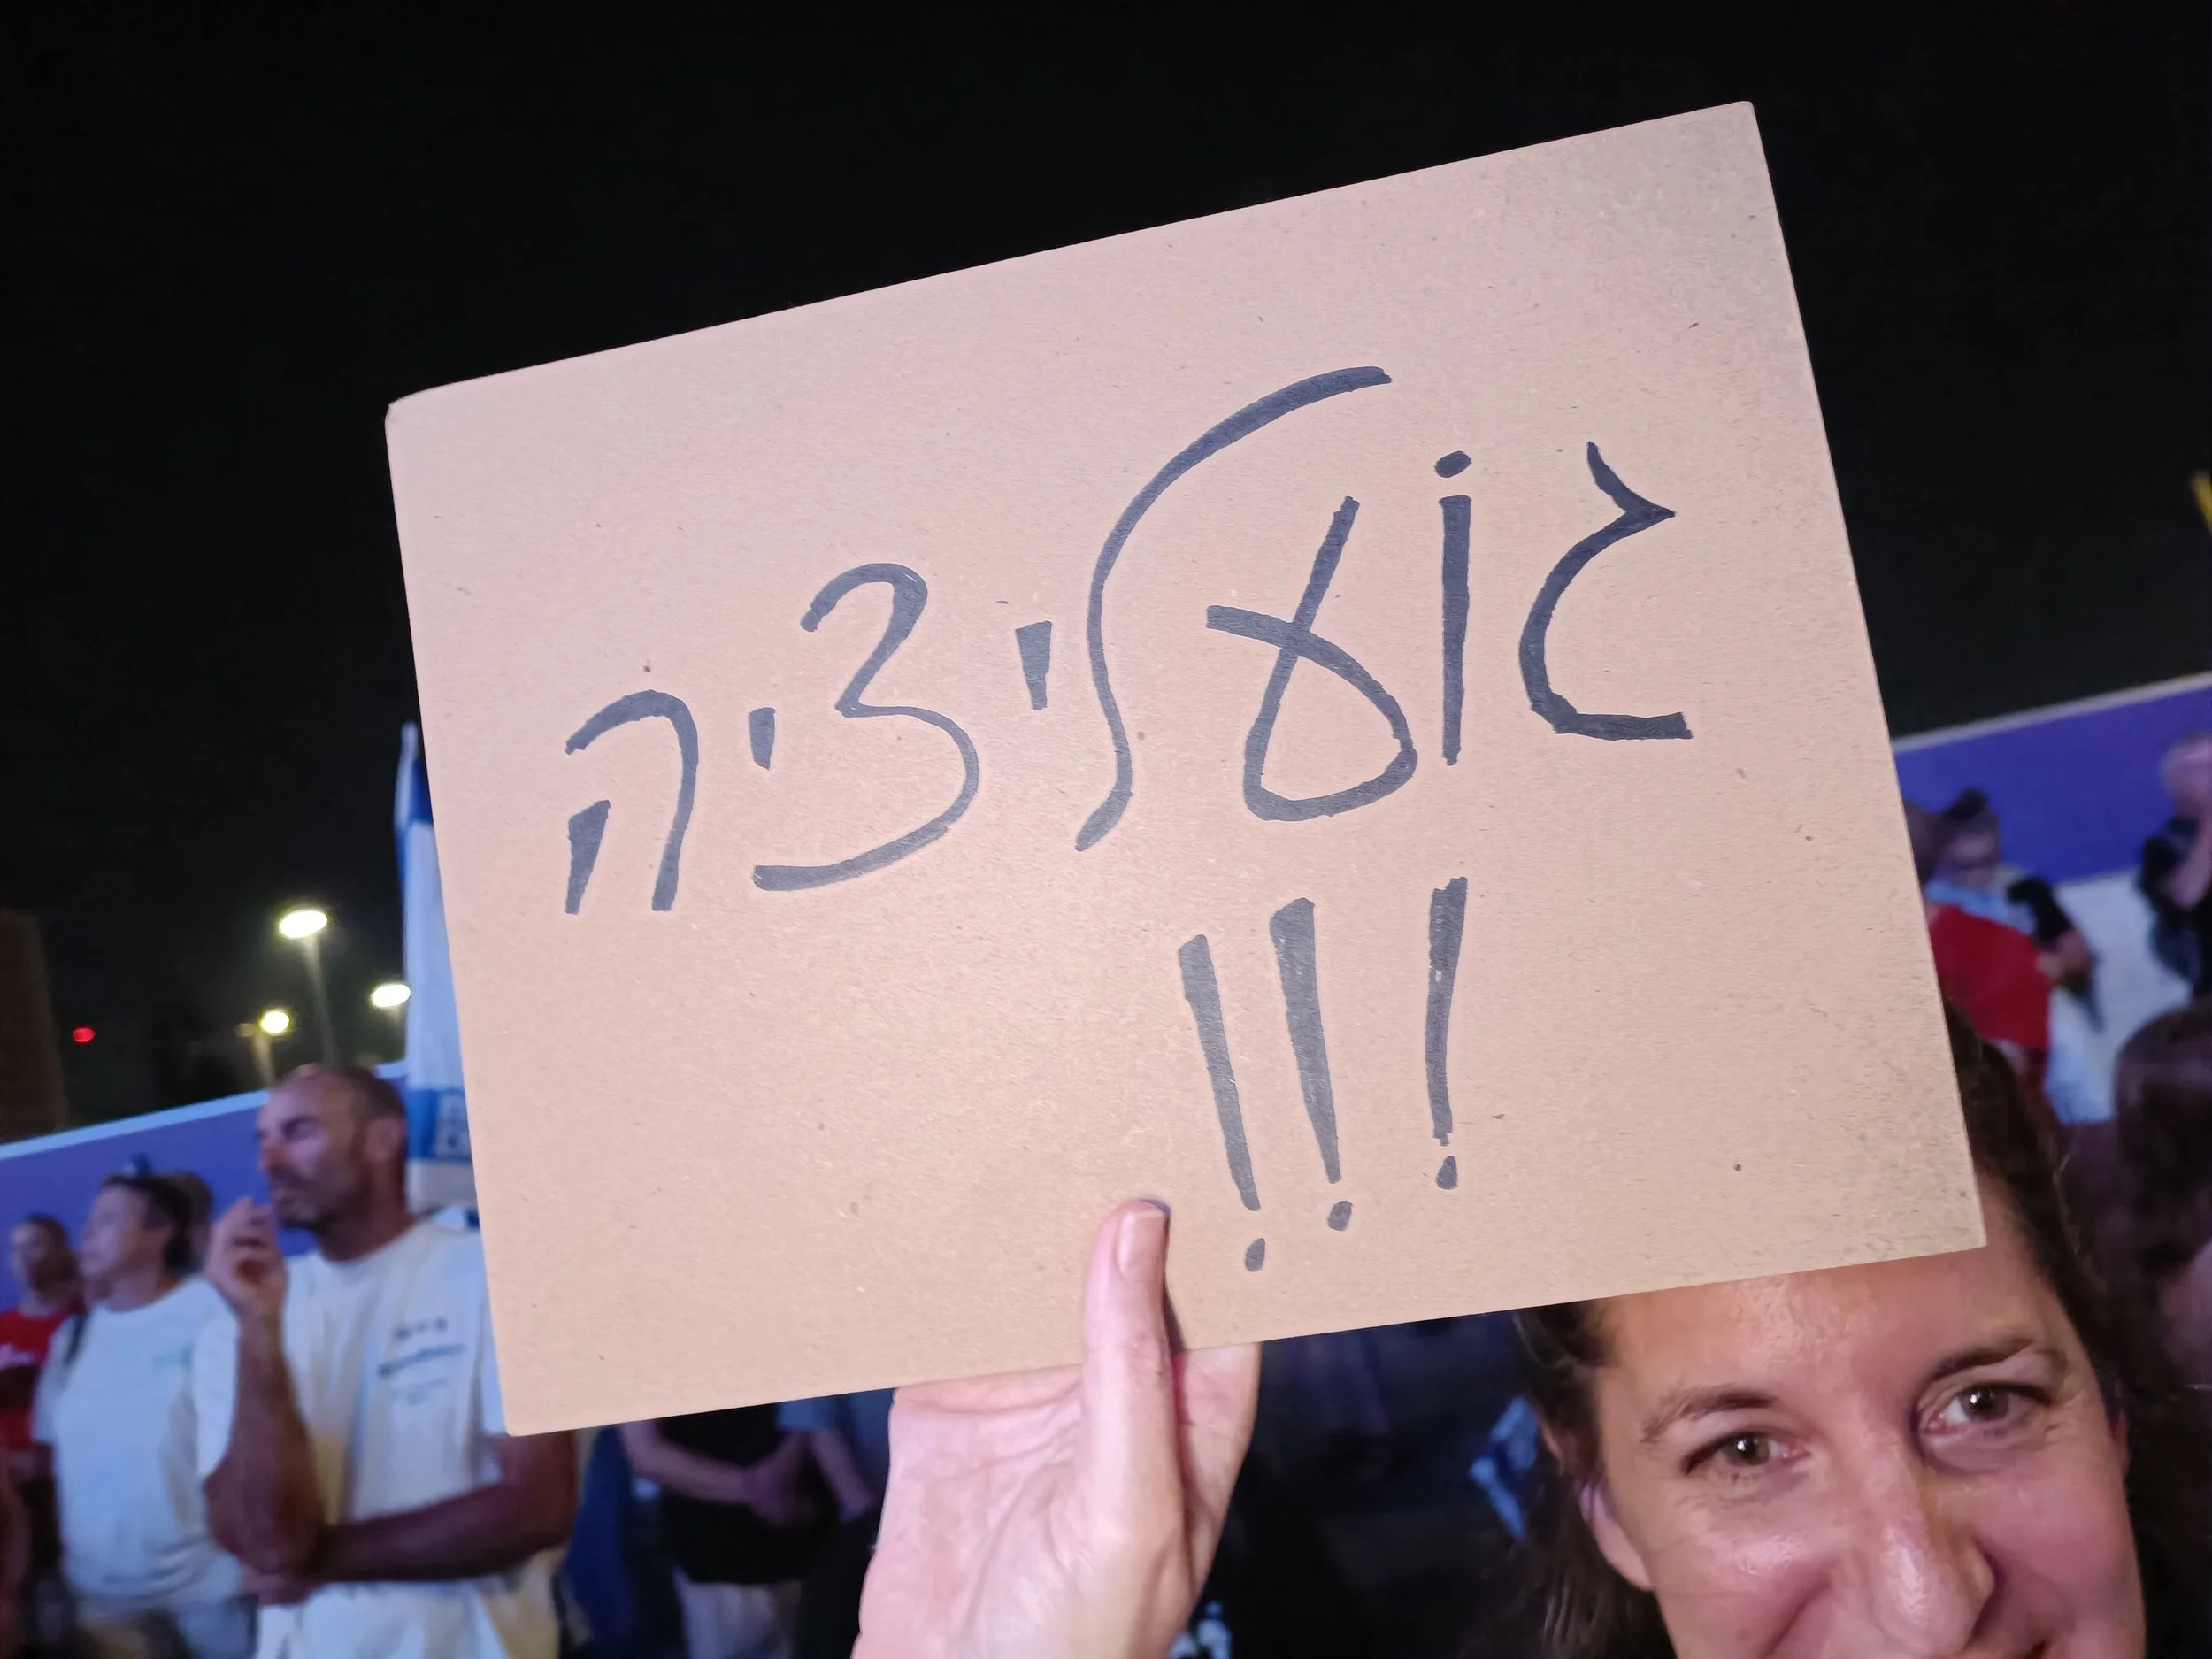 גוֹעליציה
!!!